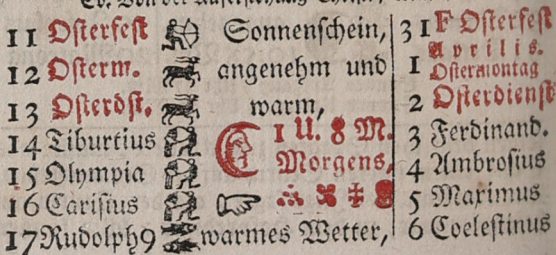 11 Osterfest Sonnenschein, 31 F Osterfest
Aprilis.
12 Osterm. angenehm und 1 Ostermontag
13 Osterdst. warm, 2 Osterdienst
14 Tiburtius 1 U. 8 M. 3 Ferdinand.
15 Olympia Morgens, 4 Ambrosius
16 Carisius 5 Maximus
17 Rudolph 9 warmes Wetter, 6 Coelestinus